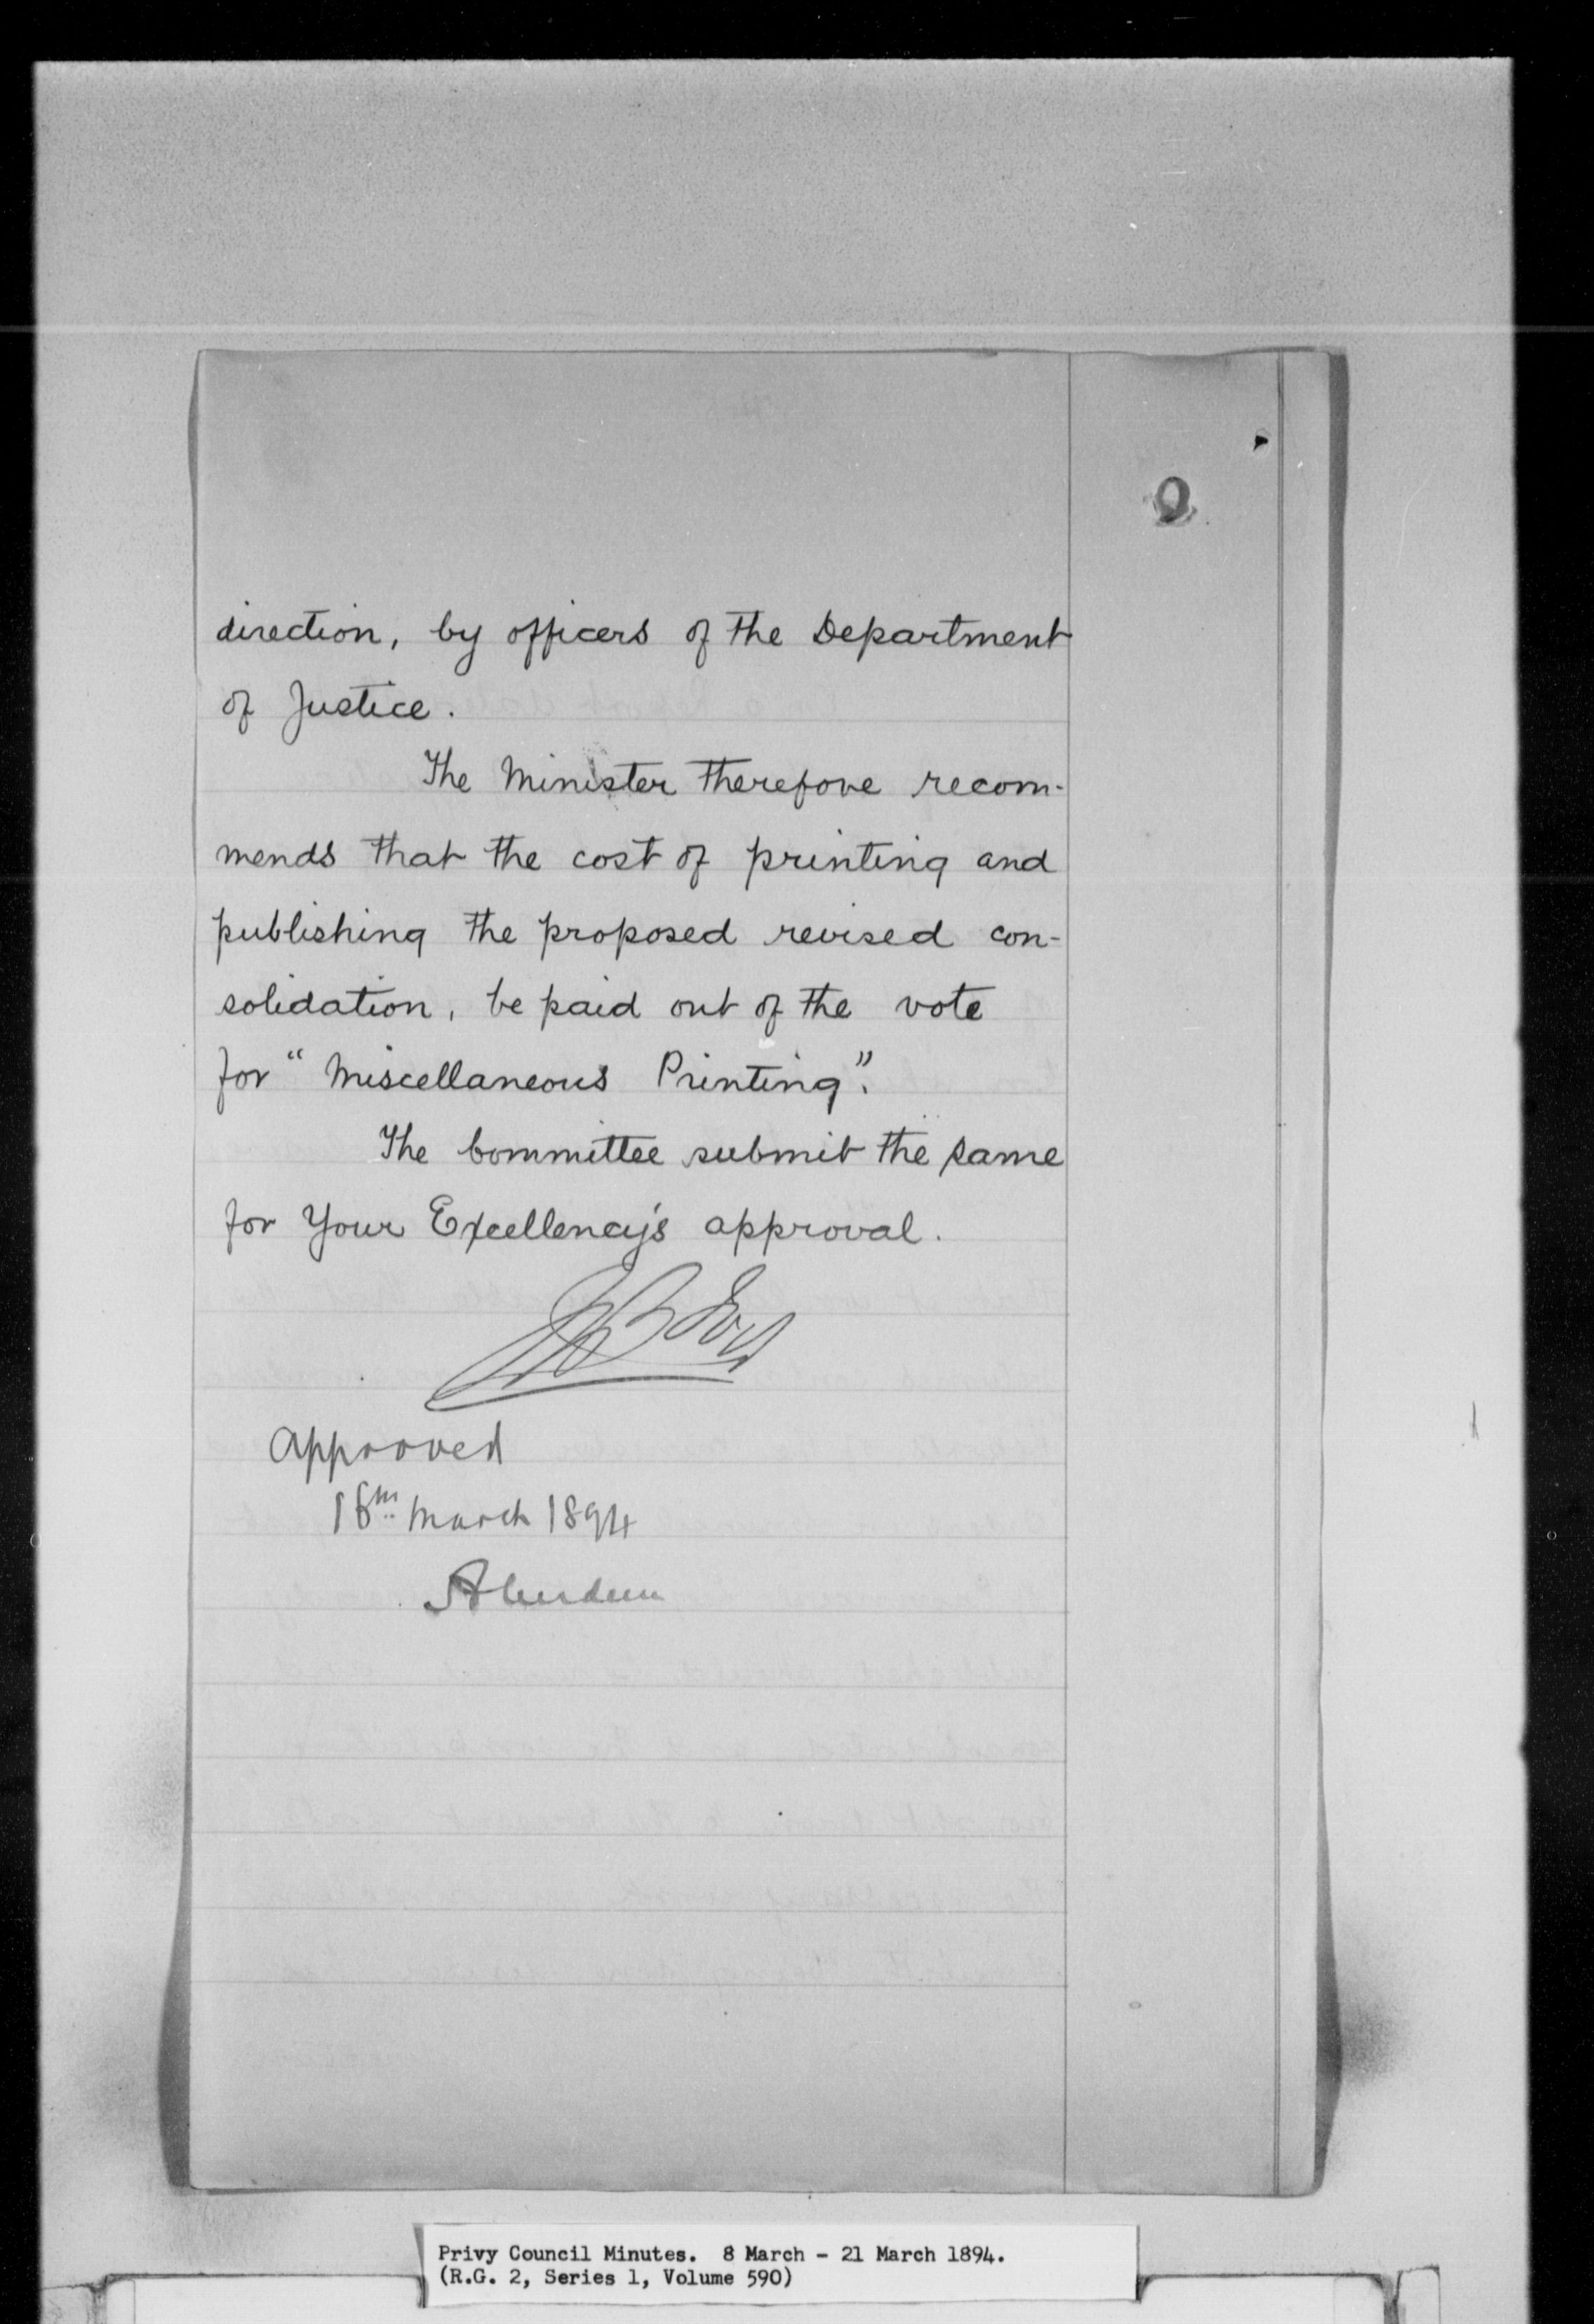 direction, by officers of the Department
of Justice.
The Minister therefore recom-
mends that the cost of printing and
publishing the proposed revised con-
solidation, be paid out of the vote
for "Miscellaneous Printing".
The Committee submit the same
for Your Excellency's approval.
Approved
March 1894
Aberdeen
Privy Council Minutes. 8 March - 21 March 1894.
(R.G. 2, Series 1, Volume 590)